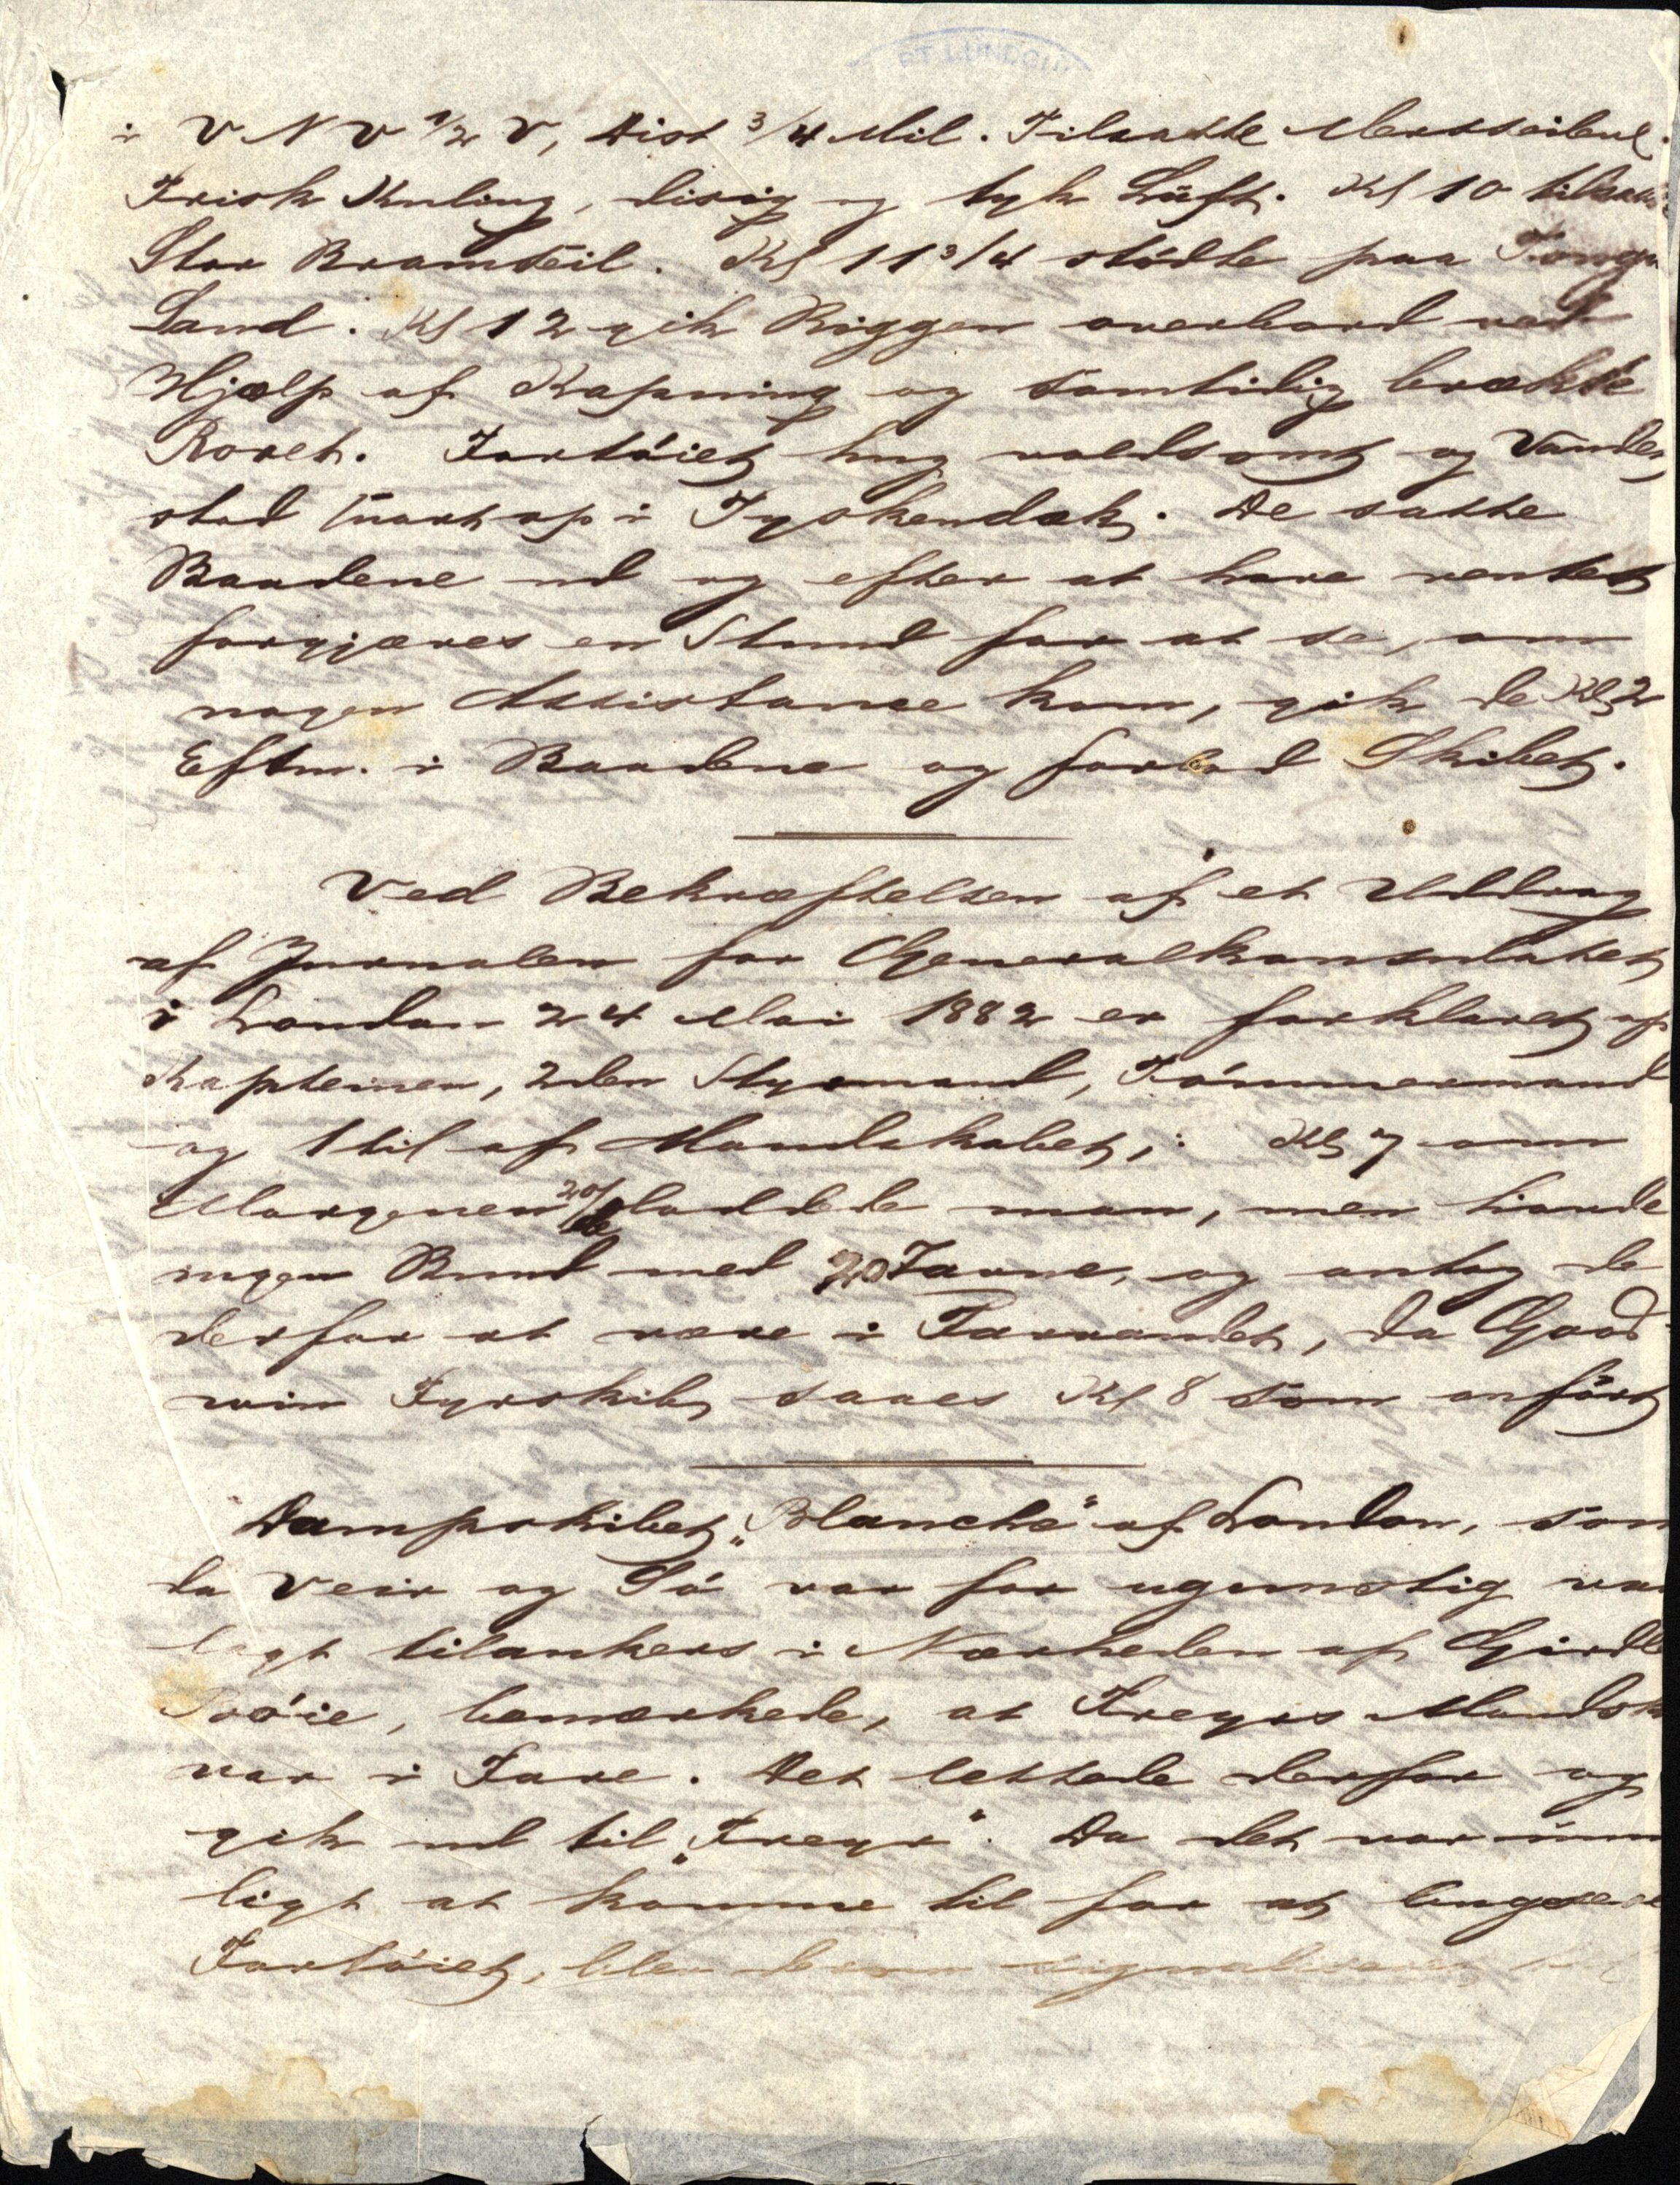 i V N V 1/2 V, Dist 3/4 Mil. Tilsatte Mersseilene.
Frisk Kuling, disig og tyk Luft. Kl 10 tilsatte
Stor Bramseil. Kl 11 3/4 stödte paa Tonge
Sand. Kl 12 gik Riggen overbord ved
Hjælp af Kapning og samtidig brækte
Roret. Fartöiet hug voldsomt og Vandet
stod snart op i Tyskendæk. De satte
Baadene ud og efter at have ventet
forgjæves en Stund for at se, om
nogen Assistance kom, gik de Kl 2
Eftm. i Baadene og forlod Skibet.
Ved Bekræftelsen af et Uddrag
af Jurnalen for Generalkonsulatet
i London 24 Mai 1882 er forklaret af
Kapteinen, 2den Styrmand, Tömmermand
og 1 til af Mandskabet,: Kl 7 om
Morgenen 20/ loddede man, men havde
ingen Bund med 20 Favne, og antog de
derfor at være i Farvandet, da Good
win Fyrskib saaes Kl 8 som anfört
Dampskibet „Blanche" af London, som
da Veir og Sö var for ugunstig var
lagt tilankers i Nærheden af Girdle
Böie, bemærkede, at Freyrs Mandsk
var i Fare. Det lettede derfor og
gik ud til „Freyr". Da det var umu
ligt at komme til for at bugsere
Fartöiet, blev signaliseret